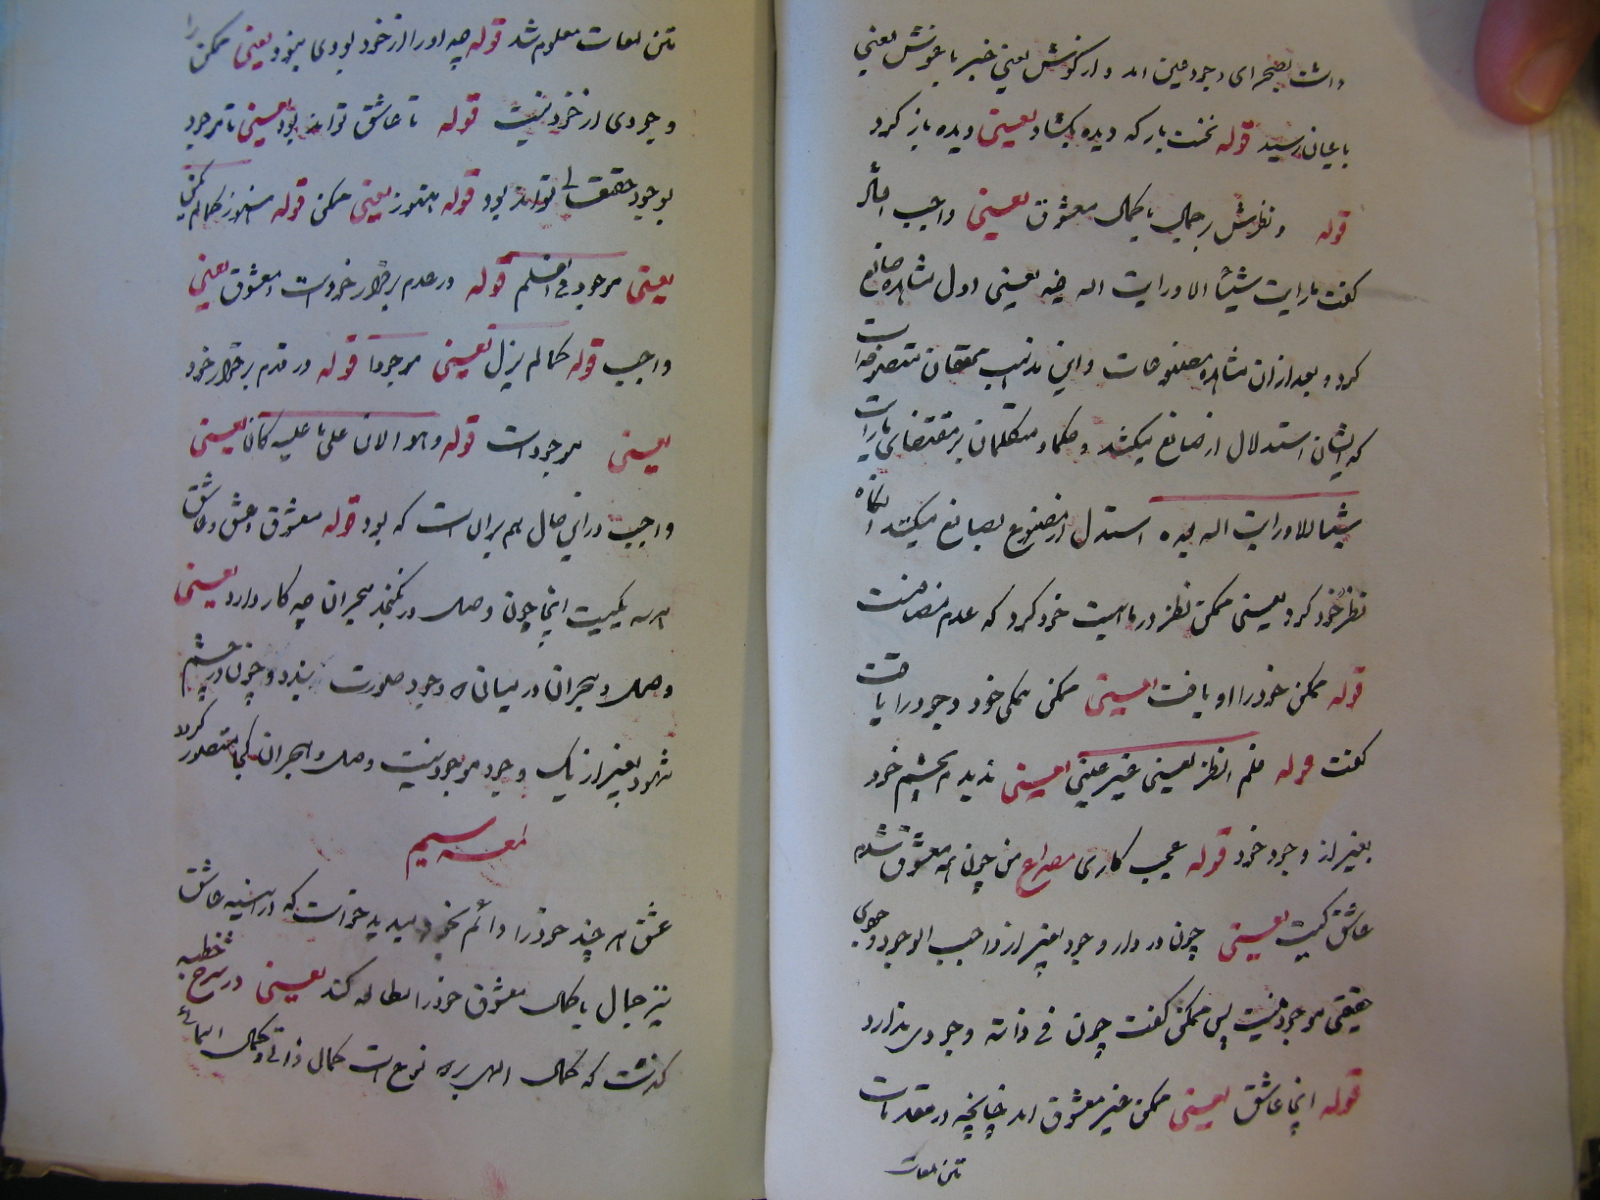 داشت بصحرای وجود عین امد و از کوشش یعنی خبر با غوشش یعنی
با عیان رسید قوله نخست بار که دیده بکشاد یعنی دیده باز کرد
قوله و نظرش بر جمال با کمال معشوق یعنی واجب افتاد
کفت ما رایت شیئا الا و رایت الله فیه یعنی اول مشاهده صانع
کرد و بعد ازان مشاهده مصنوعات و این مذهب محققان متصوفه است
که ایشان استدلال از صانع میکنند و حکما و متکلمان بر مقتضای ما رایت
شیئا الا و رایت الله بعده استدلال از مصنوع بصانع میکنند انکاه
نظر خود کرد یعنی ممکن نظر در ماهیت خود کرد که عدم منست
قوله ممکن خود را او یافت یعنی ممکن همکی خود وجود را یافت
کفت قوله فلم انظر بعینی غیر عینی یعنی ندیدم بچشم خود
بغیر از وجود خود قوله عجب کاری مصراع من چون همه معشوق شدم
عاشق کیست یعنی چون در دار وجود بغیر از واجب الوجود وجودی
حقیقی موجود نیست پس ممکن کفت چون فی ذاته وجودی ندارد
قوله اینجا عاشق یعنی ممکن غیر معشوق امد چنانچه در مقدمات
متن لمعات
متن لمعات معلوم شد قوله چه او را از خود بودی نبود یعنی ممکن را
وجودی از خود نیست قوله تا عاشق تواند بود یعنی تا موجود
بوجود حقیقی تواند بود قوله هنوز یعنی ممکن قوله هنوز کما لم یکن
یعنی موجود فی العلم قوله در عدم برقرار خود است و معشوق یعنی
واجب قوله کما لم یزل یعنی موجودا قوله در قدم برقرار خود
یعنی موجود است قوله و هو الان علی ما علیه کان یعنی
واجب در این حال هم بران است که بود قوله معشوق و عشق و عاشق
هر سه یکیست اینجا چون وصل در نکنجد هجران چه کار دارد یعنی
وصل و هجران در میان دو وجود صورت بندد و چون در چشم
شهود بغیر از یک وجود موجود نیست وصل و هجران کجا متصور کردد
لمعه سیم
عشق هر چند خود را دائم بخود میدید خواست که در اینه عاشق
نیز جمال با کمال معشوق خود را مطالعه کند یعنی در شرح خطبه
کذشت که کمال الهی بر دو نوع است کمال ذاتی و کمال اسمائی